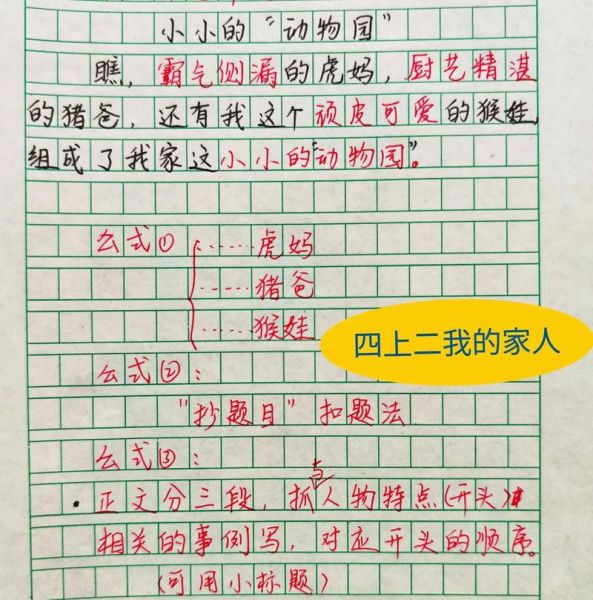 小小的“动物园”
瞧，霸气侧漏的虎妈，厨艺精湛
的猪爸，还有我这个顽皮可爱的猴娃，
组成了我家这小小的“动物园”。
公式① ……虎妈
……猪爸
……猴娃
四上二我的家人
公式②：
“抄题目”扣题法
公式③：
·正文分三段，抓与人物特点（开头）
相关的事例写，对应开头的顺序。
（可用小标题）